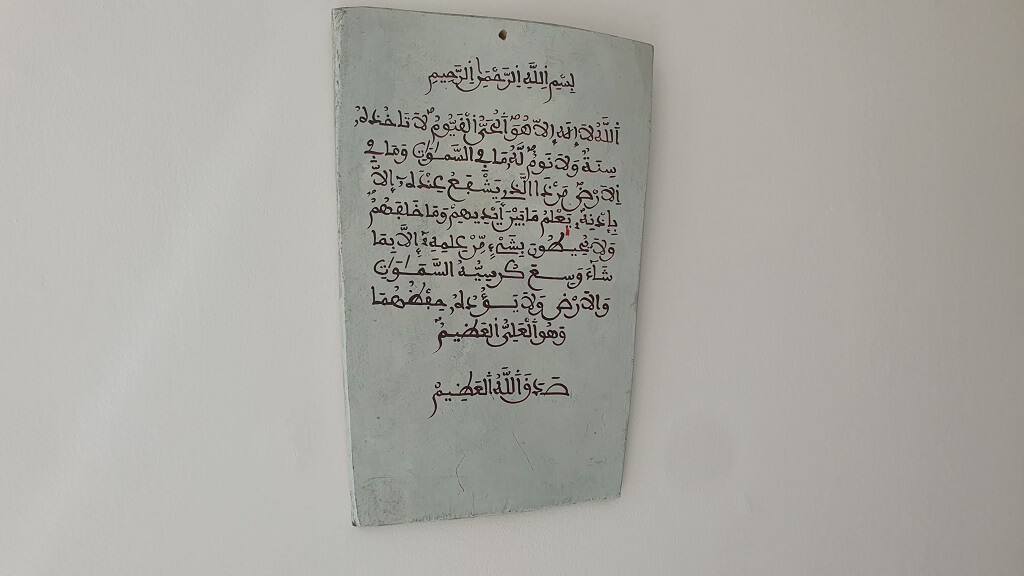 بِسْمِ اللَّهِ الرَّحْمَٰنِ الرَّحِيمِ
اللَّهُ لَا إِلَٰهَ إِلَّا هُوَ الْحَيُّ الْقَيُّومُ لَا تَاخُذُهُ
سِنَةٌ وَلَا نَوْمٌ لَّهُ مَا فِي السَّمَٰوَٰتِ وَمَا فِي
الَارْضِ مَن ذَا الَّذِي يَشْفَعُ عِندَهُ إِلَّا
بِإِذْنِهِ يَعْلَمُ مَا بَيْنَ أَيْدِيهِمْ وَمَا خَلْفَهُمْ
وَلَا يُحِيطُونَ بِشَيْءٍ مِّنْ عِلْمِهِ إِلَّا بِمَا
شَاءَ وَسِعَ كُرْسِيُّهُ السَّمَٰوَٰتِ
وَالَارْضَ وَلَا يَـُٔودُهُ حِفْظُهُمَا
وَهُوَ الْعَلِيُّ الْعَظِيمُ
صَدَقَ اللَّهُ الْعَظِيمُ